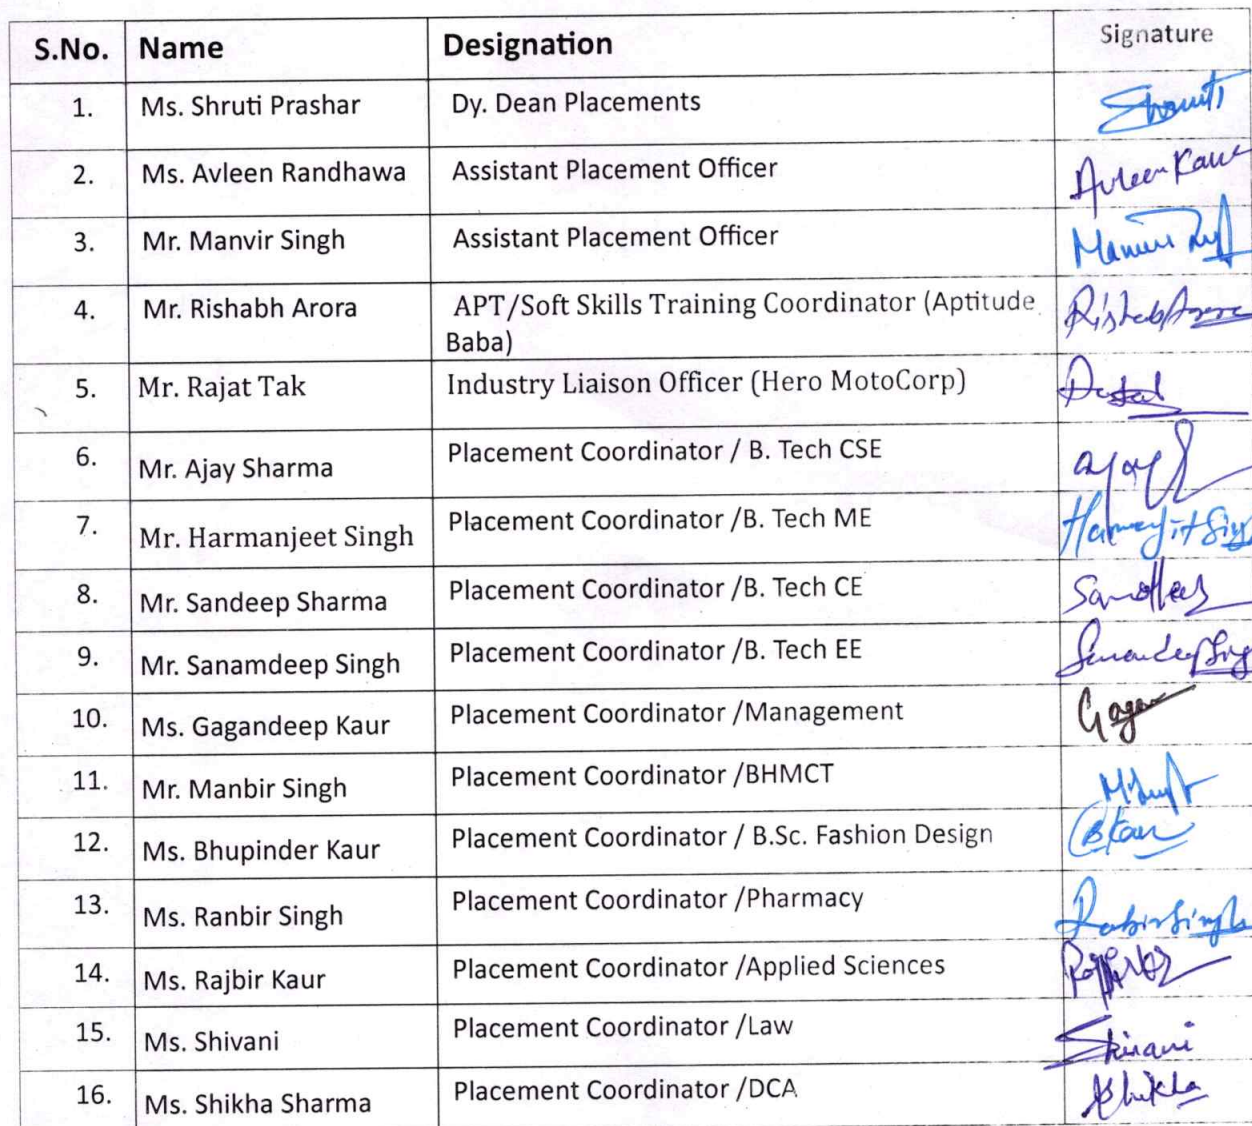 S.No. Name Designation Signature
1. Ms. Shruti Prashar Dy. Dean Placements Shruti
2. Ms. Avleen Randhawa Assistant Placement Officer Avleen Kaur
3. Mr. Manvir Singh Assistant Placement Officer
4. Mr. Rishabh Arora APT/Soft Skills Training Coordinator (Aptitude
Baba)
5. Mr. Rajat Tak Industry Liaison Officer (Hero MotoCorp)
6. Mr. Ajay Sharma Placement Coordinator / B. Tech CSE ajay
7. Mr. Harmanjeet Singh Placement Coordinator /B. Tech ME
8. Mr. Sandeep Sharma Placement Coordinator /B. Tech CE
9. Mr. Sanamdeep Singh Placement Coordinator /B. Tech EE
10. Ms. Gagandeep Kaur Placement Coordinator /Management Gagan
11. Mr. Manbir Singh Placement Coordinator /BHMCT
12. Ms. Bhupinder Kaur Placement Coordinator / B.Sc. Fashion Design
13. Ms. Ranbir Singh Placement Coordinator /Pharmacy
14. Ms. Rajbir Kaur Placement Coordinator /Applied Sciences
15. Ms. Shivani Placement Coordinator /Law Shivani
16. Ms. Shikha Sharma Placement Coordinator /DCA Shikha